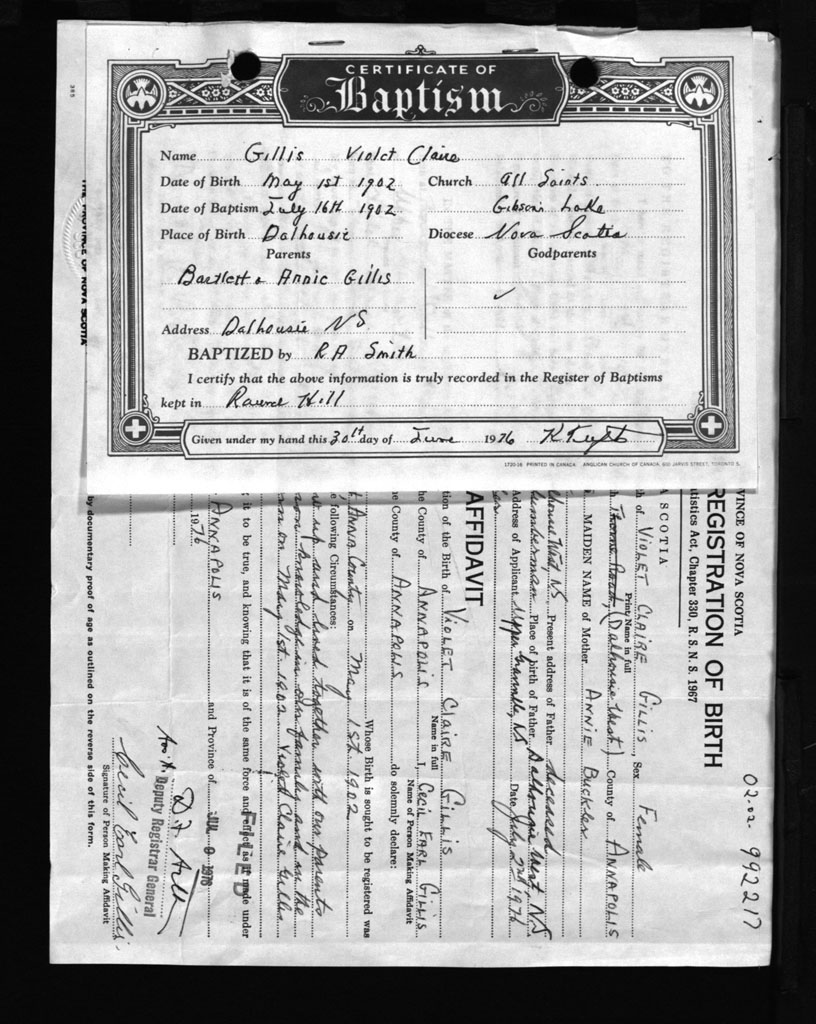 CERTIFICATE OF
Baptism
Name Gillis Violet Claire
Date of Birth May 1st 1902 Church All Saints
Date of Baptism July 16th 1902 Gibson's Lake
Place of Birth Dalhousie Diocese Nova Scotia
Parents Godparents
Bartlett & Annie Gillis
Address Dalhousie NS
BAPTIZED by R A Smith
I certify that the above information is truly recorded in the Register of Baptisms
kept in Round Hill
Given under my hand this 30th day of June 1976
1720-16 PRINTED IN CANADA ANGLICAN CHURCH OF CANADA, 600 JARVIS STREET, TORONTO 5.
PROVINCE OF NOVA SCOTIA
02-02- 992217
VINCE OF NOVA SCOTIA
REGISTRATION OF BIRTH
tistics Act, Chapter 330, R.S.N.S. 1967
SCOTIA
h of VIOLET CLAIRE GILLIS, Sex Female
Print Name in full
Thorne Road, (Dalhousie West) County of ANNAPOLIS
MAIDEN NAME of Mother ANNIE Buckler
West, NS Present address of Father deceased
umberman Place of birth of Father Dalhousie West, NS
Address of Applicant Upper Granville, NS Date July 2nd 1976
AFFIDAVIT
tion of the Birth of VIOLET CLAIRE GILLIS
Name in full
he County of ANNAPOLIS I, CECIL EARL GILLIS
Name of Person Making Affidavit
he County of ANNAPOLIS do solemnly declare:
Whose Birth is sought to be registered was
Anna County on May 1st 1902
e following Circumstances:
up and lived together with our parents
knowledge in our family and in the
on May 1st 1902 Violet Claire Gillis
it to be true, and knowing that it is of the same force and effect as if made under
FILED
ANNAPOLIS and Province of
JUL 9 1976
1976
Deputy Registrar General
Cecil Earl Gillis
Signature of Person Making Affidavit
by documentary proof of age as outlined on the reverse side of this form.